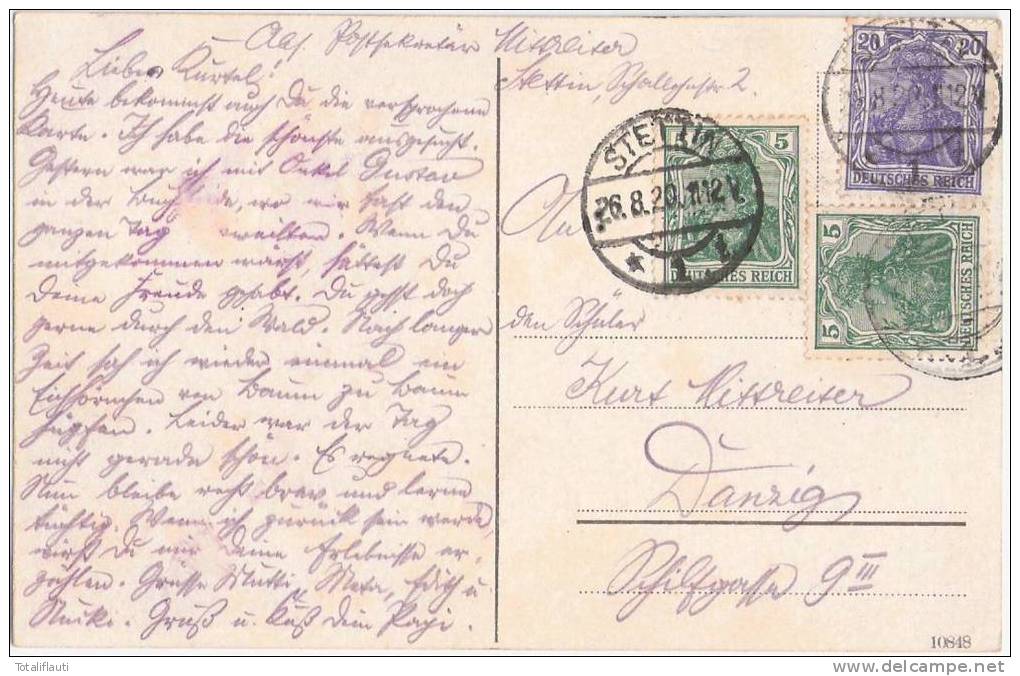 Abs. Postsekretär Mittreiter
Stettin, 2.
Lieber Kurtel!
Heute bekommst auch Du die versprochene
Karte. Ich habe die schönste ausgesucht.
Gestern war ich mit Onkel Gustav
in der Buchheide, wo wir fast den
ganzen Tag weilten. Wenn Du
mitgekommen wärst, hättest Du
Deine Freude gehabt. Du gehst doch
gerne durch den Wald. Nach langer
Zeit sah ich wieder einmal ein
Eichhörnchen von Baum zu Baum
hüpfen. Leider war der Tag
nicht gerade schön. Es regnete.
Nun bleibe recht brav und lerne
tüchtig. Wenn ich zurück sein werde,
wirst Du mir Deine Erlebnisse er-
zählen. Grüsse Mutti, Meta, Edith u.
Gruß u. Kuß Dein Papi.
An
den Schüler
Kurt Mittreiter
Danzig
Schilfgasse 9 III
20 20
DEUTSCHES REICH
5
DEUTSCHES REICH
5 5
DEUTSCHES REICH
STETTIN
26.8.20.11-12V.
* 1
10848
Totaliflauti
http://www.delcampe.net